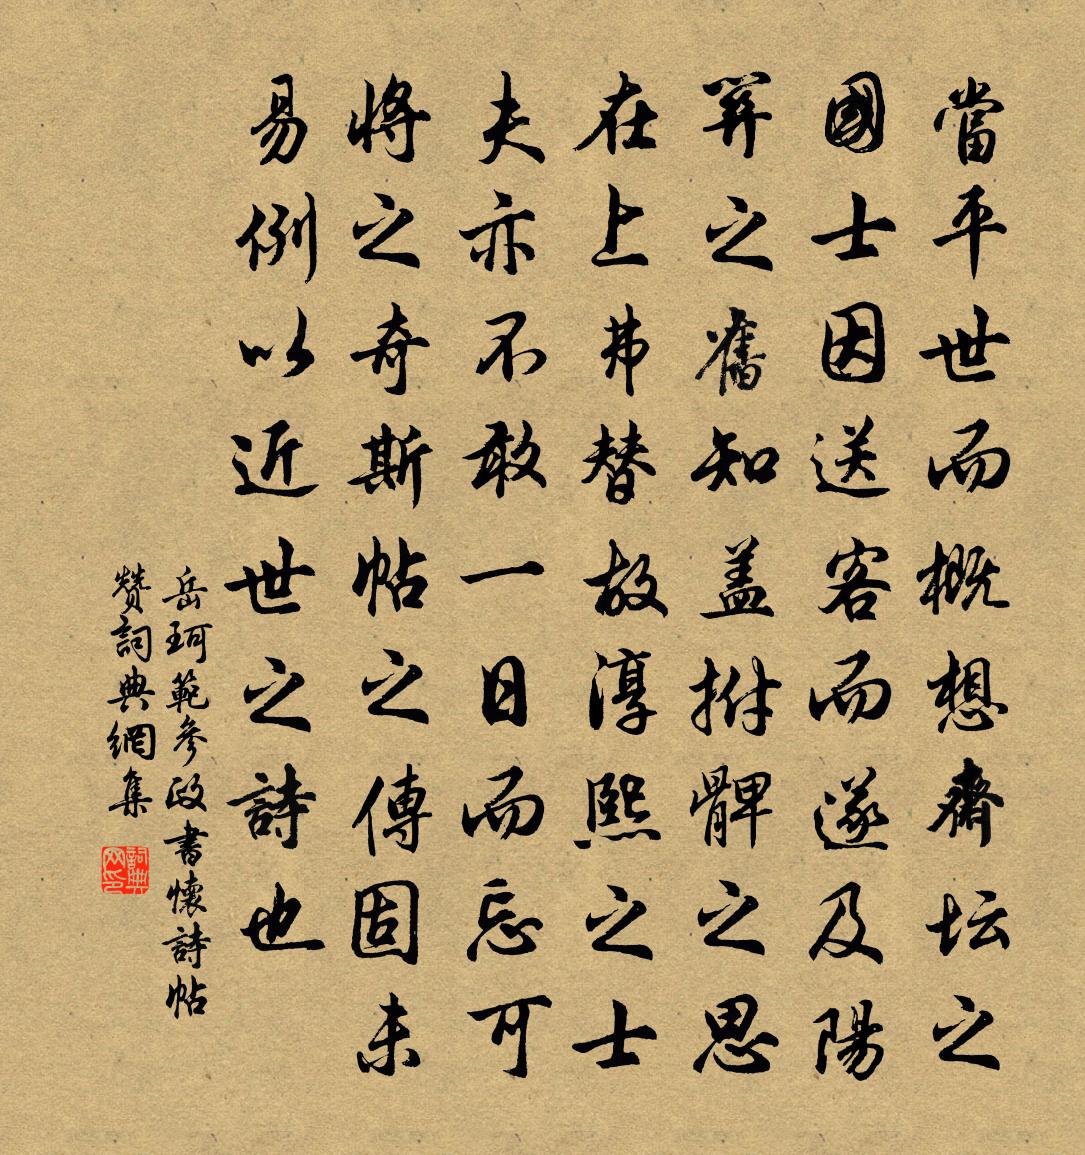 當平世而概想齋坛之
國士因送客而遂及陽
羿之舊知盖拊髀之思
在上弗替故淳熙之士
夫亦不敢一日而忘可
將之奇斯帖之傳固未
易例以近世之詩也
岳珂範參政書懷詩帖
贊詞典網集
詞典网印